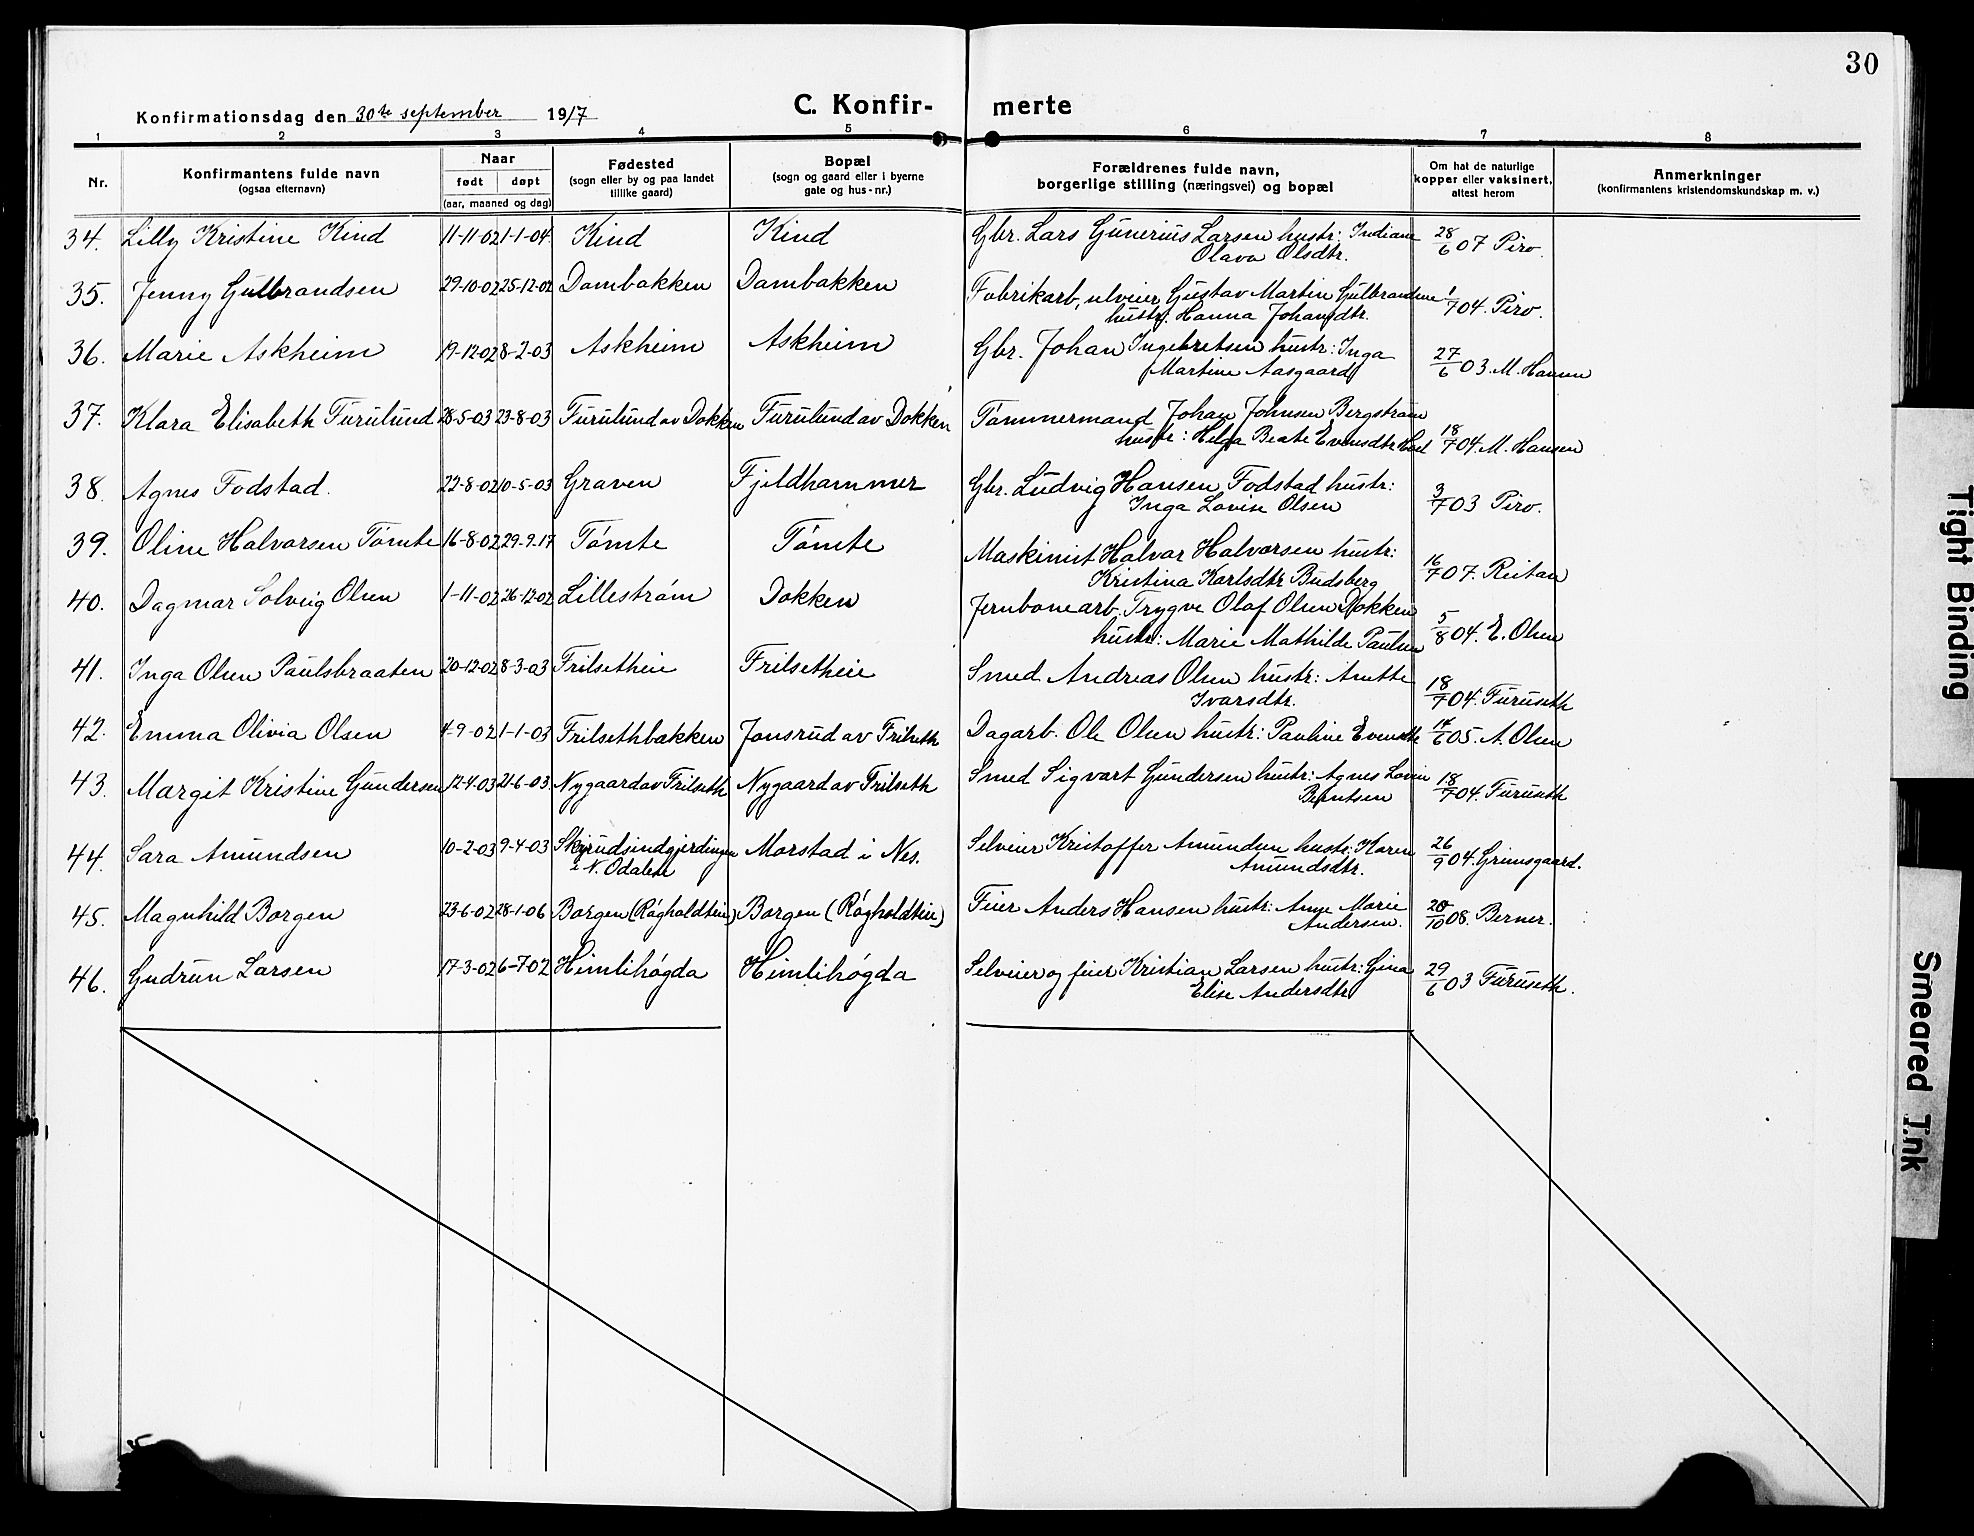 30
Konfirmationsdag den 30te september 1917
C. Konfir- merte
1 2 3 4 5 6 7 8
Nr.
Konfirmantens fulde navn
(ogsaa efternavn)
Naar
født døpt
(aar, maaned og dag)
Fødested
(sogn eller by og paa landet
tillike gaard)
Bopæl
(sogn og gaard eller i byerne
gate og hus-nr.)
Forældrenes fulde navn,
borgerlige stilling (næringsvei) og bopæl
Om hat de naturlige
kopper eller vaksinert,
attest herom
Anmerkninger
(konfirmantens kristendomskundskap m. v.)
34. Lilly Kristine Kind 11-11-02 1-1-04. Kind Kind Gbr. Lars Gunerius Larsen hustr: Indiane 28/6 07 Piro.
Olava Olsdtr.
35. Jenny Gulbrandsen 29-10-02 25-12-02 Dambakken Dambakken Fabrikarb, selveier Gustav Martin Gulbrandsen 1/7 04. Piro.
hustr. Hanna Johansdtr.
36. Marie Askheim 19-12-02 8-2-03 Askheim Askheim Gbr. Johan Ingebretsen hustr: Inga 27/6 03. M. Hansen
Martine Aasgaard
37. Klara Elisabeth Furulund 28-5-03 23-8-03 Furulund av Dokken Furulund av Dokken Tømmermand Johan Johnsen Bergstrøm
hustr: Helga Beate Evensdtr 18/7 04. M. Hansen
38. Agnes Fodstad. 22-8-02 10-5-03 Graven Fjeldhammer Gbr. Ludvig Hansen Fodstad hustr: 3/7 03 Piro.
Inga Lovise Olsen
39. Oline Halvorsen Tømte 16-8-02 29-9-17 Tømte Tømte Maskinist Halvar Halvorsen hustr:
Kristina Karlsdtr Budsberg 16/7 07. Reitan
40. Dagmar Solveig Olsen 1-11-02 26-12-02 Lillestrøm Dokken Jernbanearb. Trygve Olaf Olsen Dokken
hustr: Marie Mathilde Paulsen 5/8 04. E. Olsen
41. Inga Olsen Paulsbraaten 20-12-02 8-3-03 Frilsetheie Frilsetheie Smed Andreas Olsen hustr: Anette
Ivarsdtr. 18/7 04. Furuseth
42. Emma Olivia Olsen 4-9-02 1-1-03 Frilsethbakken Jonsrud av Frilseth Dagarb. Ole Olsen hustr: Pauline Evensdtr 14/6 05. A. Olsen
43. Margit Kristine Gundersen 12-4-03 21-6-03. Nygaard av Frilseth Nygaard av Frilseth Smed Sigvart Gundersen hustr: Agnes Lovise 18/7 04. Furuseth
Berntsen
44. Sara Amundsen 10-2-03 9-4-03 Skjrudsindgjerdingen Morstad i Nes. Selveier Kristoffer Amundsen hustr: Karen 26/9 04. Grimsgaard.
i N. Odalen Amundsdtr.
45. Magnhild Borgen 23-6-02 28-1-06 Borgen (Røgholdteie) Borgen (Røgholdteie) Feier Anders Hansen hustr: Anne Marie 20/10 08. Berner.
Andersen.
46. Gudrun Larsen 17-3-02 6-7-02 Himlihøgda Himlihøgda Selveier og feier Kristian Larsen hustr: Gina 29/6 03 Furuseth.
Elise Andersdtr
Tight Binding
Smeared Ink